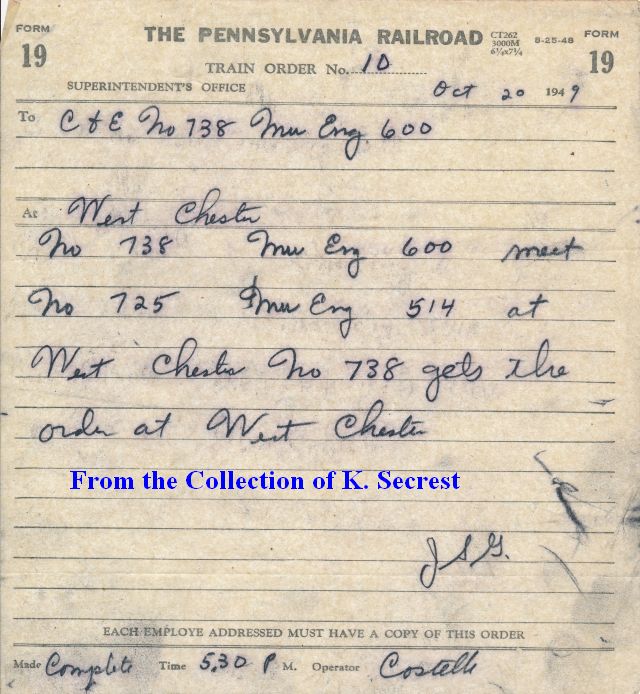 FORM 19 THE PENNSYLVANIA RAILROAD CT262 3000M 6¼x7¾ 8-25-48 FORM 19
TRAIN ORDER No. 10
SUPERINTENDENT'S OFFICE Oct 20 1949
To C & E No 738 Mu Eng 600
At West Chester
No 738 Mu Eng 600 meet
No 725 Mu Eng 514 at
West Chester No 738 gets the
order at West Chester
From the Collection of K. Secrest
J S G.
EACH EMPLOYE ADDRESSED MUST HAVE A COPY OF THIS ORDER
Made Complete Time 5.30 P M. Operator Costello